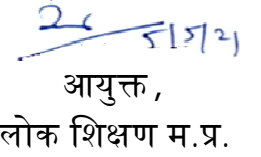 5/5/21
आयुक्त,
लोक शिक्षण म.प्र.